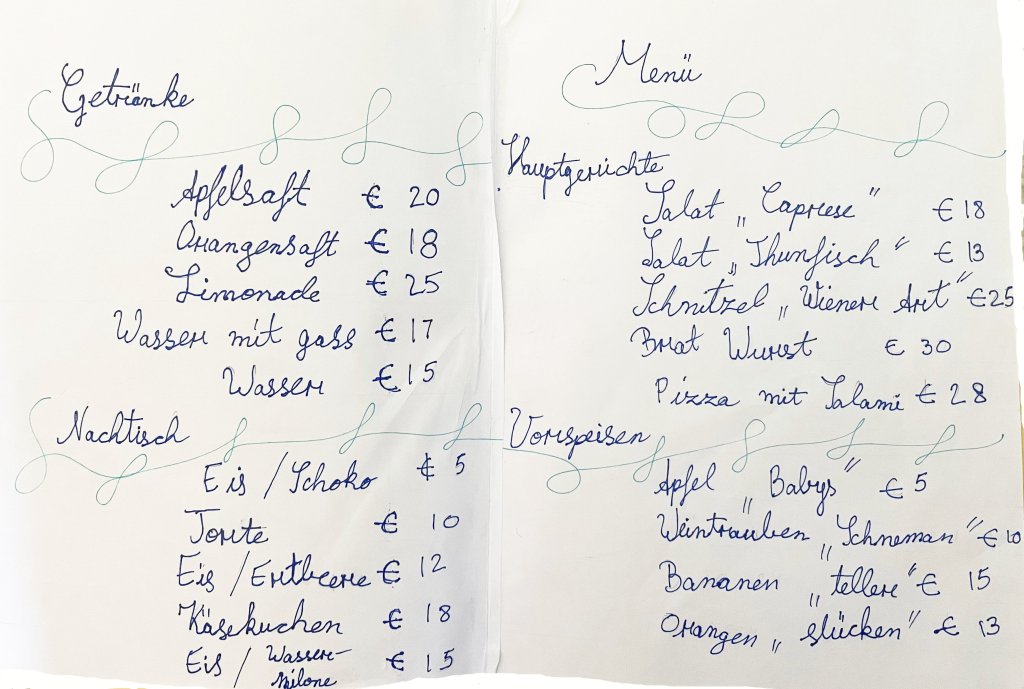 Getränke
Apfelsaft € 20
Orangensaft € 18
Limonade € 25
Wasser mit gass € 17
Wasser € 15
Nachtisch
Eis / Schoko € 5
Torte € 10
Eis / Ertbeere € 12
Käsekuchen € 18
Eis / Wasser-
Milone € 15
Menü
Hauptgerichte
Salat „Caprese" € 18
Salat „Thunfisch" € 13
Schnitzel „Wiener Art" € 25
Brat Wurst € 30
Pizza mit Salami € 28
Vorspeisen
Apfel „Babys" € 5
Weinträuben „Schneman" € 10
Bananen „teller" € 15
Orangen „stücken" € 13